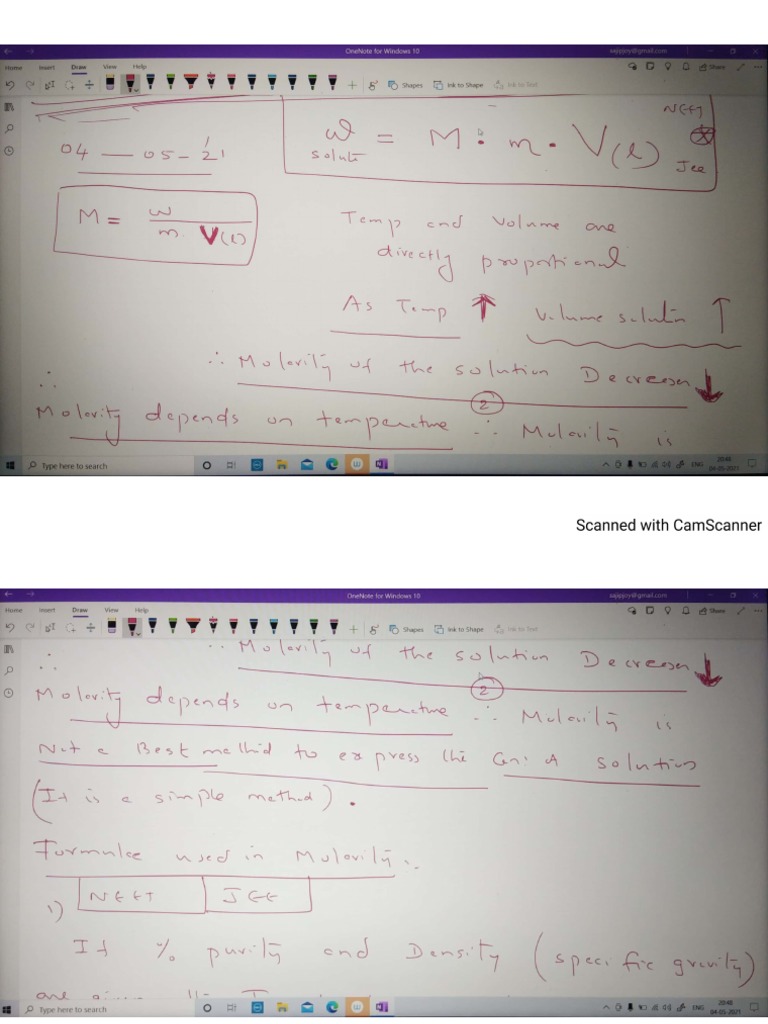 OneNote for Windows 10
sajipjoy@gmail.com
Home Insert Draw View Help
Share
Shapes Ink to Shape Ink to Text
NEET
W = M · m · V(l)
solute
Jee
04 — 05 - 21
M = w
m. V(l)
Temp and volume are
directly proportional
As Temp ↑ Volume solution ↑
∴ Molarity of the solution Decreases ↓
∴
Molarity depends on temperature ∴ Molarity is
2
Type here to search
ENG
20:48
04-05-2021
Scanned with CamScanner
OneNote for Windows 10
sajipjoy@gmail.com
Home Insert Draw View Help
Share
Shapes Ink to Shape Ink to Text
∴ Molarity of the solution Decreases ↓
∴
2
Molarity depends on temperature ∴ Molarity is
Not a Best method to express the Con: of solution
(It is a simple method).
Formulae used in Molarity:.
NEET JEE
1)
If % purity and Density (specific gravity)
are
Type here to search
ENG
20:48
04-05-2021